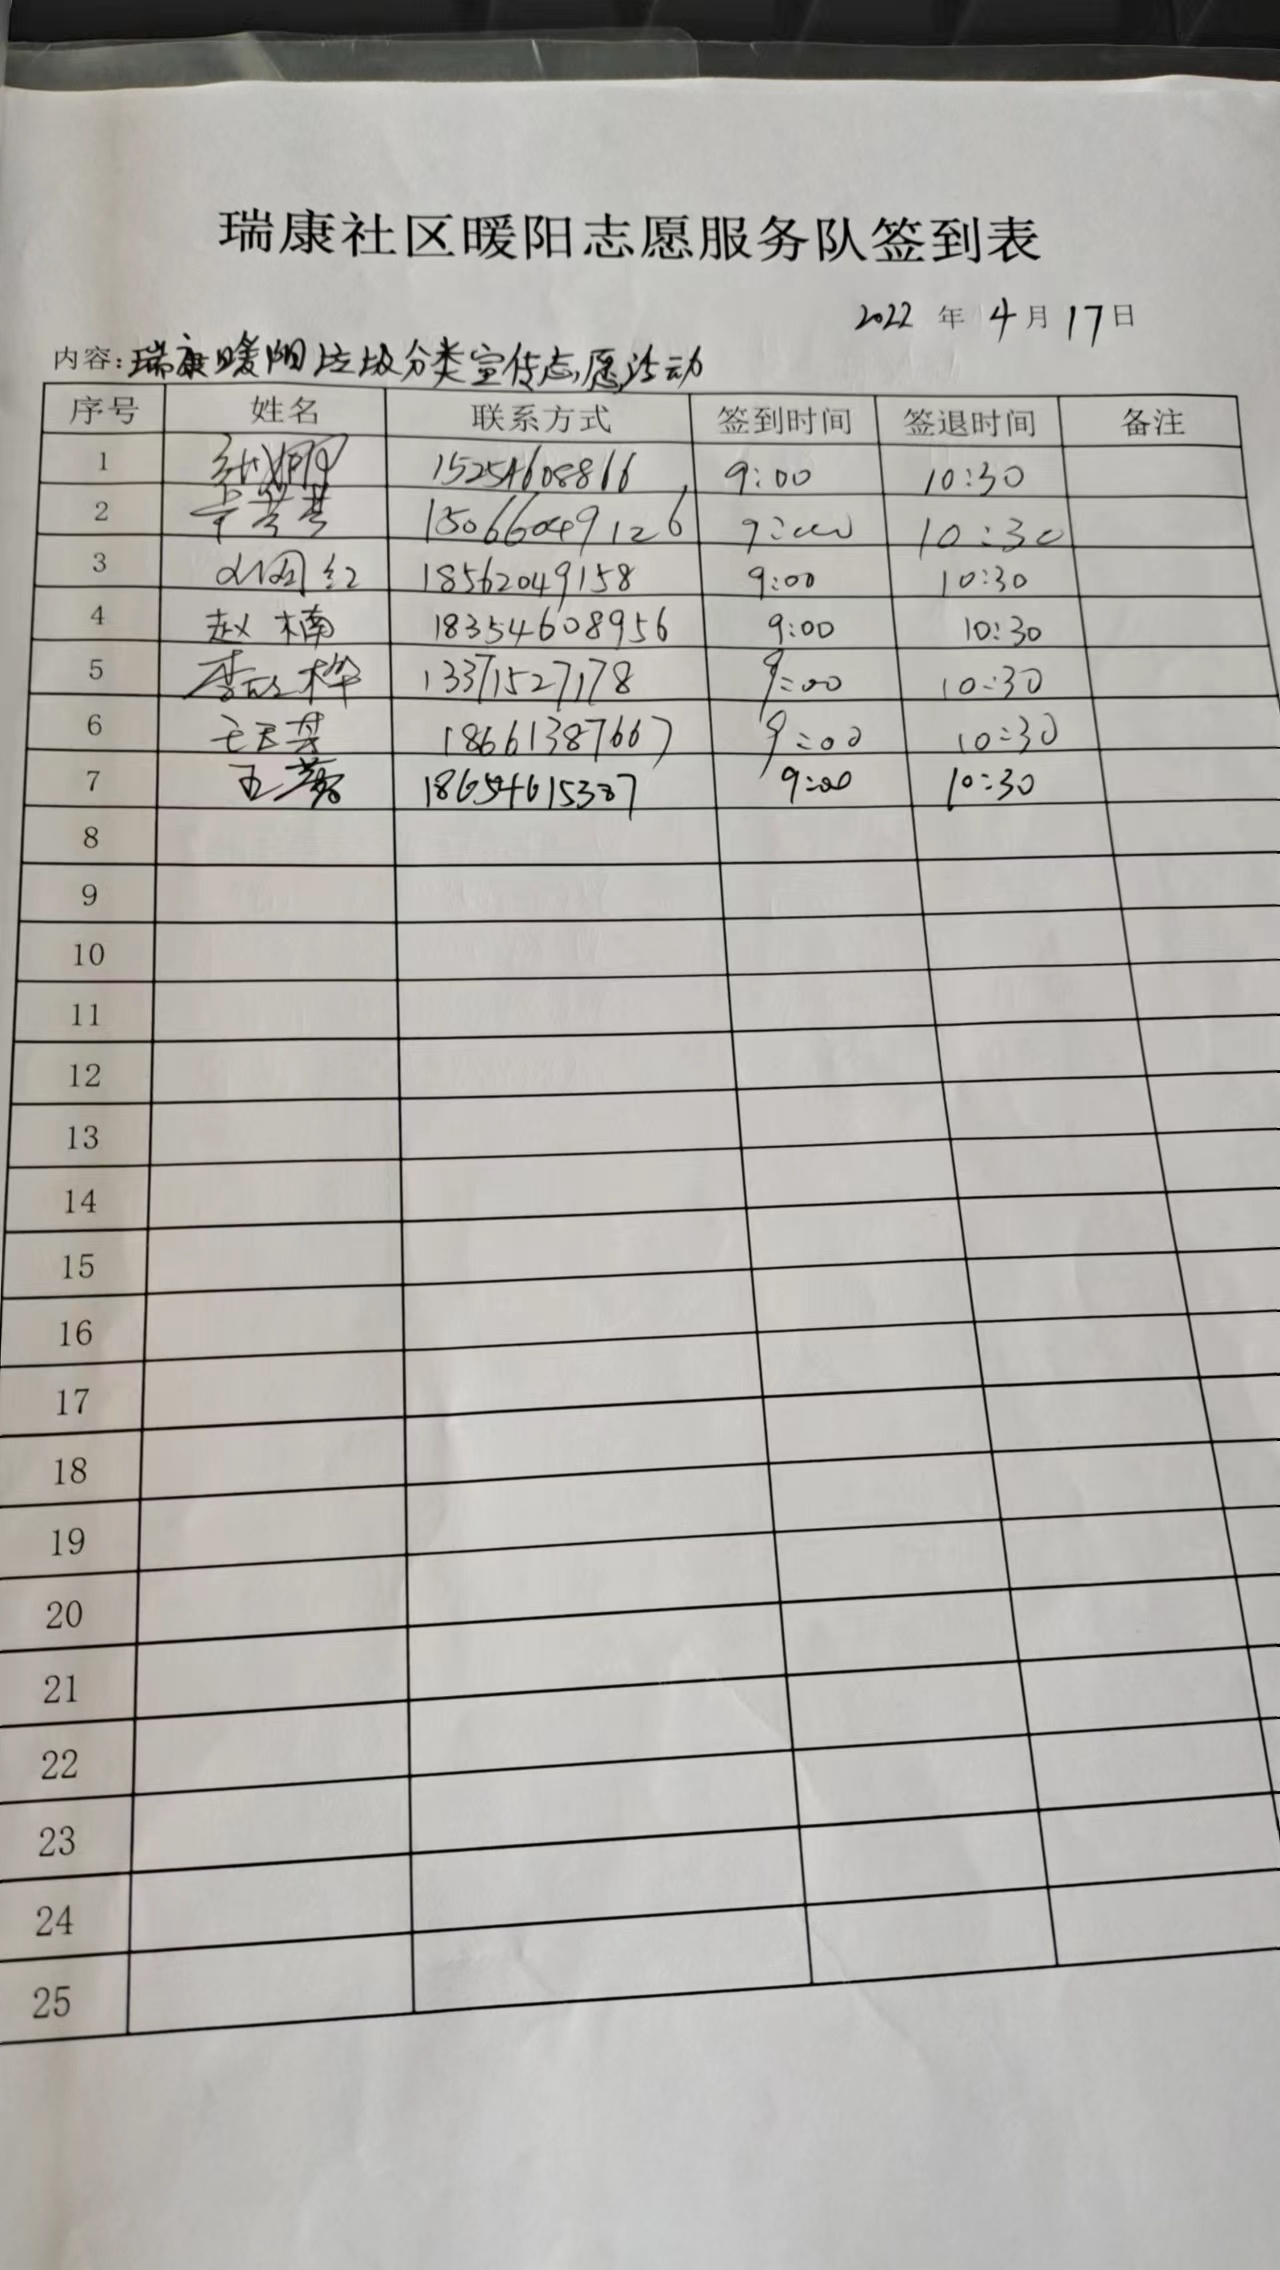 瑞康社区暖阳志愿服务队签到表
2022 年 4 月 17 日
内容: 瑞康暖阳垃圾分类宣传志愿活动
序号 姓名 联系方式 签到时间 签退时间 备注
1 15254608866 9:00 10:30
2 15066049126 9:00 10:30
3 18562049158 9:00 10:30
4 赵楠 18354608956 9:00 10:30
5 13371527178 9:00 10:30
6 18661387667 9:00 10:30
7 18654615387 9:00 10:30
8
9
10
11
12
13
14
15
16
17
18
19
20
21
22
23
24
25